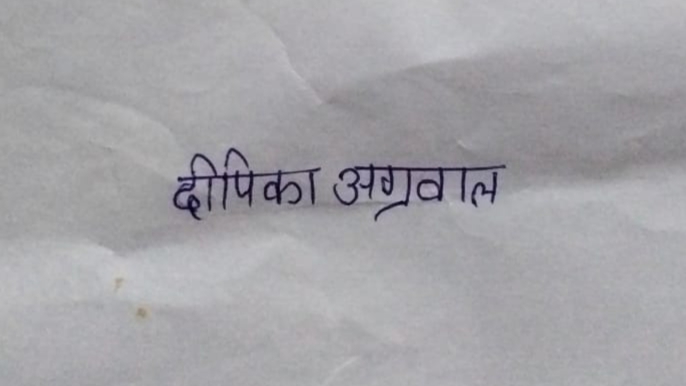 दीपिका अग्रवाल